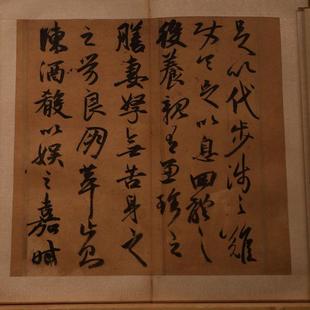 足以代步涉之難
使令足以息四體之
役養親有兼珍之
膳妻孥無苦身之
之勞良朋萃止則
陳酒殽以娛之嘉時